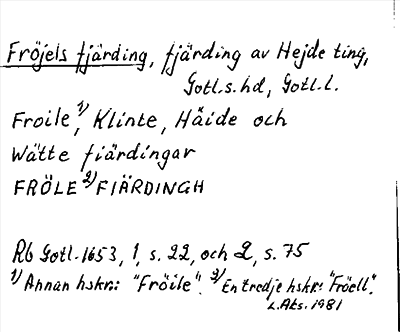 Fröjels fjärding, fjärding av Hejde ting,
Gotl.s.hd, Gotl.l.
Froile 1), Klinte, Häide och
Wätte fiärdingar
FRÖLE 2) FIÄRDINGH
Rb Gotl. 1653, 1, s. 22, och 2, s. 75
1) Annan hskr: "Fröile". 2) En tredje hskr: "Fröell".
L.Aks. 1981